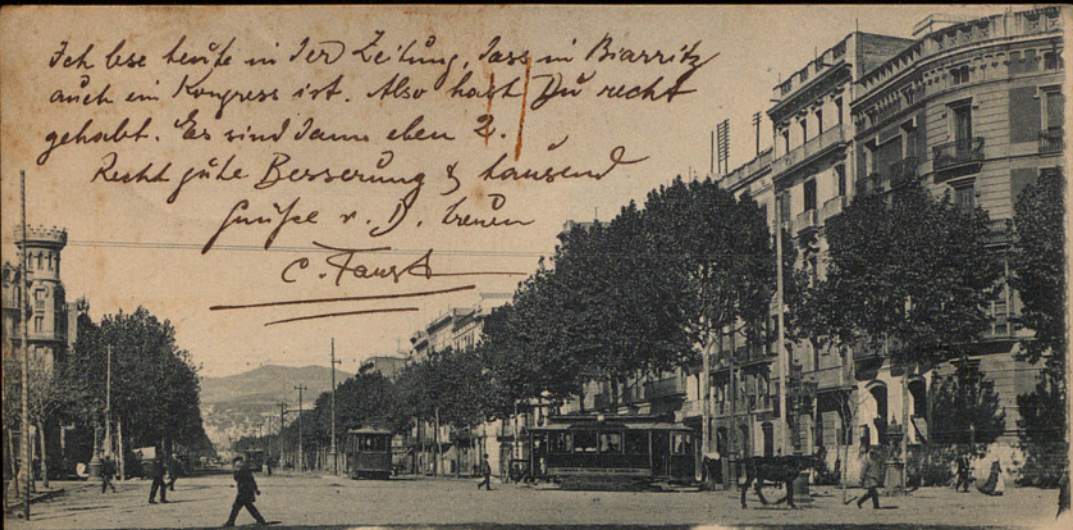 Ich lese heute in der Zeitung, dass in Biarritz
auch ein Kongress ist. Also hast Du recht
gehabt. Es sind dann eben 2.
Recht gute Besserung & tausend
Grüße v. D. treuen
C. Faust